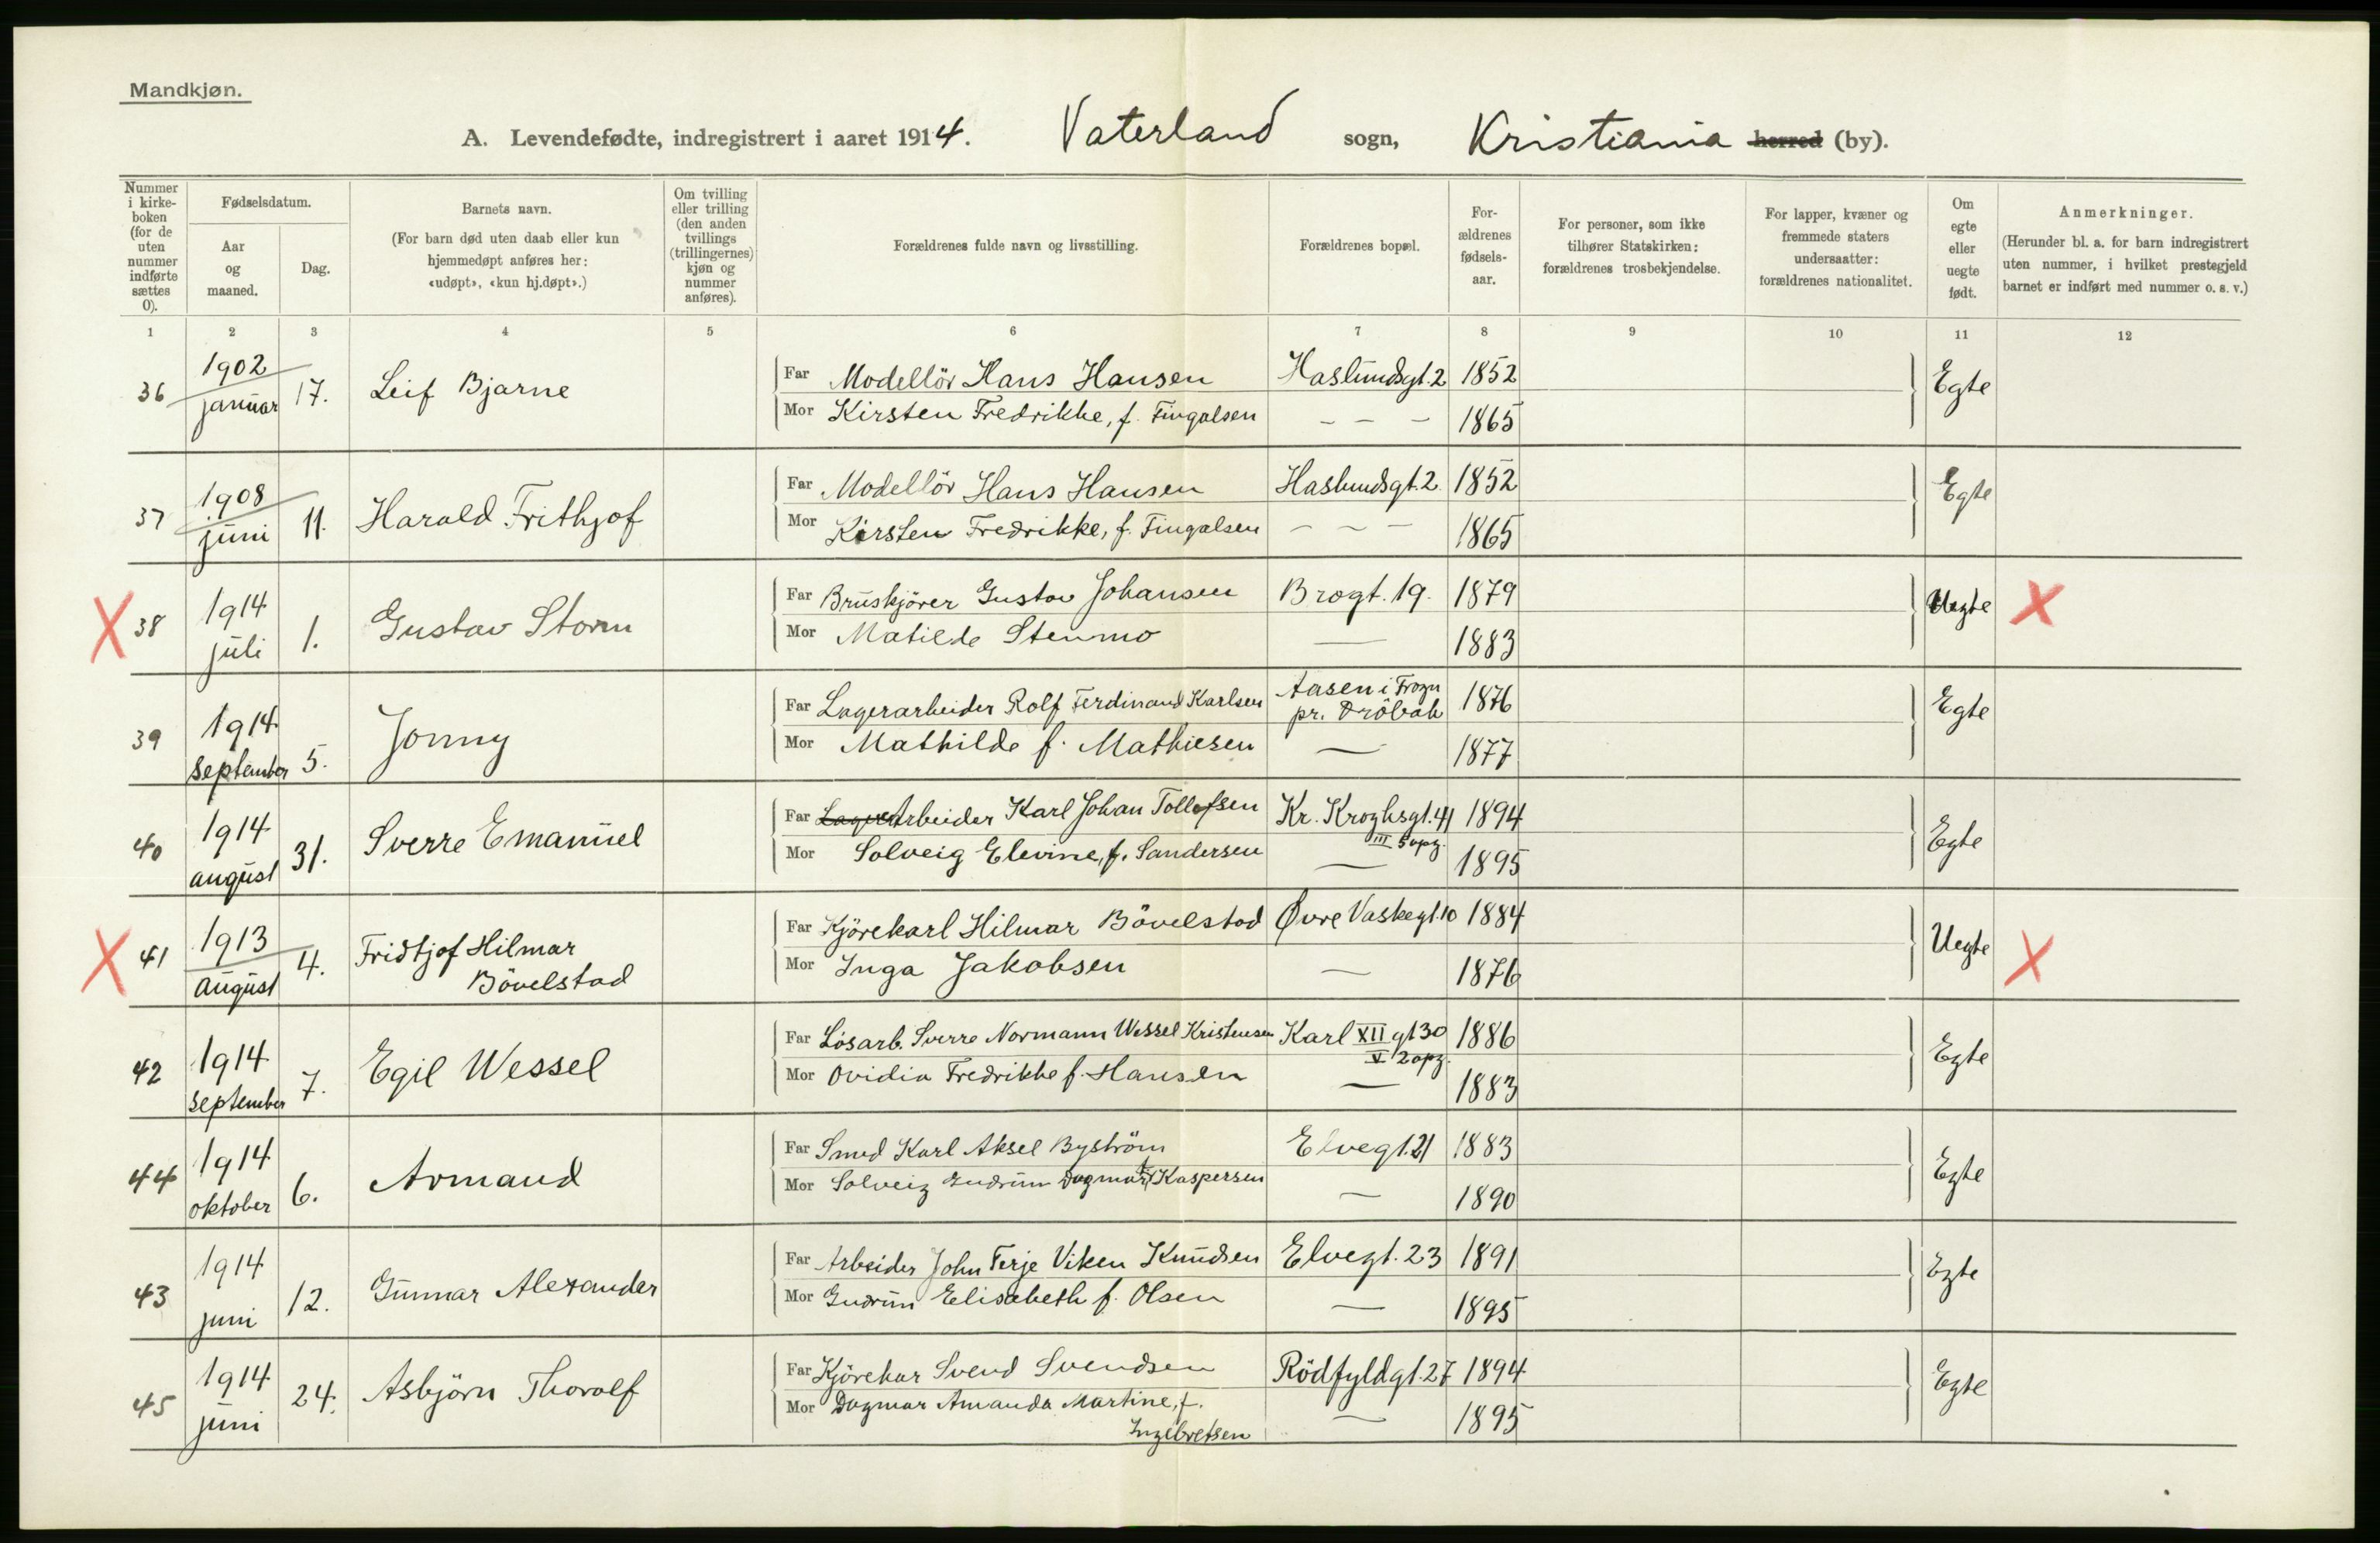 Mandkjøn.
A. Levendefødte, indregistrert i aaret 1914. Vaterland sogn, Kristiania herred (by).
Nummer i kirke-boken (for de uten nummer indførte sættes 0).
Fødselsdatum.
Aar og maaned.
Dag.
Barnets navn.
(For barn død uten daab eller kun hjemmedøpt anføres her: «udøpt», «kun hj.døpt».)
Om tvilling eller trilling (den anden tvillings (trillingernes) kjøn og nummer anføres).
Forældrenes fulde navn og livsstilling.
Forældrenes bopæl.
For-ældrenes fødsels-aar.
For personer, som ikke tilhører Statskirken: forældrenes trosbekjendelse.
For lapper, kvæner og fremmede staters undersaatter: forældrenes nationalitet.
Om egte eller uegte født.
Anmerkninger.
(Herunder bl. a. for barn indregistrert uten nummer, i hvilket prestegjeld barnet er indført med nummer o. s. v.)
1 2 3 4 5 6 7 8 9 10 11 12
36 1902 januar 17. Leif Bjarne Far Modellör Hans Hansen Haslundsgt. 2 1852 Egte
Mor Kirsten Fredrikke, f. Fingalsen – – – 1865
37 1908 juni 11. Harald Frithjof Far Modellör Hans Hansen Haslundsgt. 2. 1852 Egte
Mor Kirsten Fredrikke, f. Fingalsen – – – 1865
X 38 1914 juli 1. Gustav Storm Far Bruskjörer Gustav Johansen Brogt. 19. 1879 Uegte X
Mor Matilde Stenmo — 1883
39 1914 september 5. Jonny Far Lagerarbeider Rolf Ferdinand Karlsen Aasen i Frogn pr. Dröbak 1876 Egte
Mor Mathilde f. Mathiesen — 1877
40 1914 august 31. Sverre Emanuel Far Lager Arbeider Karl Johan Tollefsen Kr. Kroghsgt. 41 III 5 opg. 1894 Egte
Mor Solveig Elevine, f. Sandersen — 1895
X 41 1913 august 4. Fridtjof Hilmar Bövelstad Far Kjörekarl Hilmar Bövelstad Øvre Vaskegt. 10 1884 Uegte X
Mor Inga Jakobsen — 1876
42 1914 september 7. Egil Wessel Far Lösarb. Sverre Normann Wessel Kristensen Karl XII gt 30 V 2 opg. 1886 Egte
Mor Ovidia Fredrikke f. Hansen — 1883
44 1914 oktober 6. Armand Far Smed Karl Aksel Byström Elvegt. 21 1883 Egte
Mor Solveig Gudrun Dagmar f. Kaspersen — 1890
43 1914 juni 12. Gunnar Alexander Far Arbeider John Terje Viken Knudsen Elvegt. 23 1891 Egte
Mor Gudrun Elisabeth f. Olsen — 1895
45 1914 juni 24. Asbjörn Thorolf Far Kjörekar Svend Svendsen Rödfyldgt. 27 1894 Egte
Mor Dagmar Amanda Martine, f. Ingebretsen — 1895